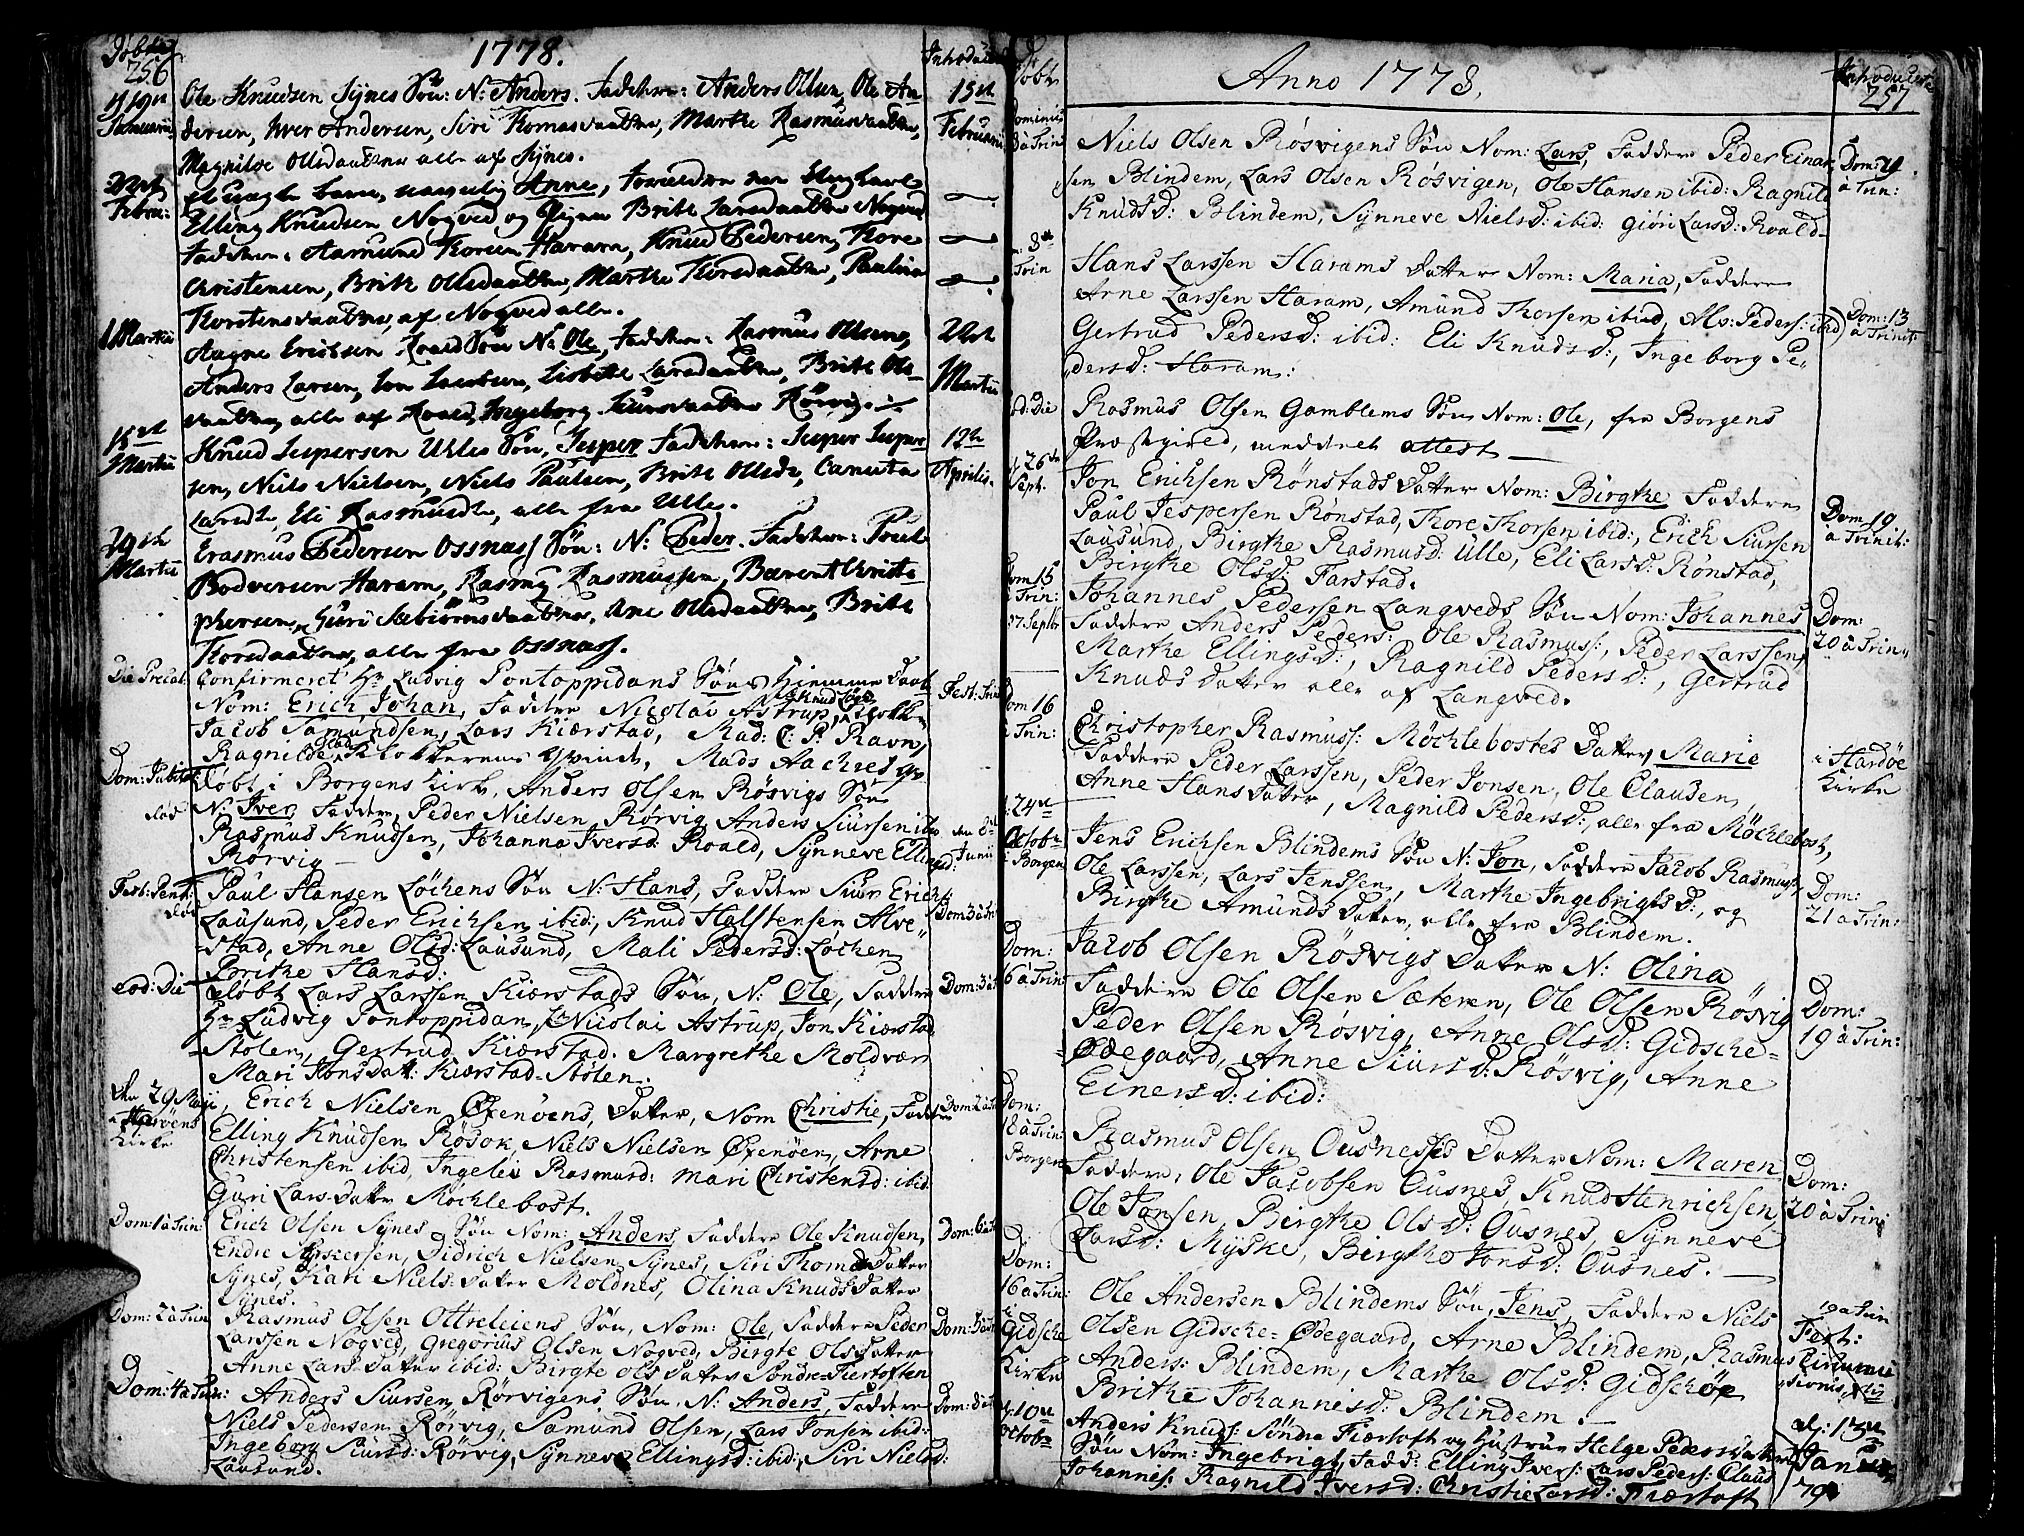 Døbte
256
1778.
Introducti
Ole Knudsen Synes Søn: N: Anders. Faddere: Anders Olsen, Ole An
Januarii
dersen, Iver Andersen, Siri Thomasdaatter, Marthe Rasmusdaatter,
15de Februarii
Magnilde Olsdaatter alle af Synes.
22de Febru:
et uægte barn, navnlig Anne, Forældre
Elling Knudsen Nogved og Pigen Brite Larsdaatter Nogved
Faddere: Aamund Thorsen Haram, Knud Pedersen, Thore
Christensen, Brite Olsdaatter, Marthe Thorsdaatter, Paulina
Thorstensdaatter, af Nogved alle.
1 Martii
Aagne Erichsen Roald Søn N: Ole, Faddere: Rasmus Olsen,
22de Martii
Anders Larsen, Jon Jacobsen, Lisbeth Larsdaatter, Brite Ols
daatter, alle af Roald, Ingeborg Siursdaatter Rørvig.
15de Martii
Knud Jespersen Ulles Søn, Jesper Faddere: Jesper Jesper
12te Aprilis.
sen, Niels Nielsen, Niels Paulsen, Brite Olsdr, Canuta
Larsdr, Eli Rasmusdr, alle fra Ulle.
29de Martii
Erasmus Pedersen Ossnass Søn: N: Peder. Faddere: Poul
Bodversen Haram, Rasmus Rasmussen, Bærent Christo
phersen, Guri Sæbiørnsdaatter, Ane Olsdaatter, Brite
Thorsdaatter, alle fra Ossnass.
Die Precat:
Confirmeret Hr Ludvig Pontoppidans Søns Hjemme Daab
Nom: Erich Johan, Faddere Nicolai Astrup, Klokk:
Fest: Trin
Jacob Samundsen, Lars Kiærstad, Mad: C: P: Ravn,
Ragnilde Klokkerens Qvinde, Mads Aachres
Dom: Jubilat
Døbt i Borgens Kirke, Anders Olsen Røsvigs Søn
N: Iver Faddere, Peder Nielsen Rørvig, Anders Siursen ibid
den 8de Junii
Rasmus Knudsen, Johanna Iversd: Roald, Synneve Ellingsd:
Rørvig —
Fest: Pent:
Paul Hansen Løchens Søn N: Hans, Faddere Siur Erichs:
Lausund, Peder Erichsen ibid:, Knud Halstensen Alve-
Dom: 3 à Tr:
stad, Anne Olsd: Lausund, Mali Pedersd: Løchen,
Borithe Hansd:
Eod: Die
Døbt Lars Larssen Kiærstads Søn, N: Ole, Faddere
Dom: 3 à Tr
Hr Ludvig Pontoppidan, Nicolai Astrup, Jon Kiærstad
Stølen, Gertrud Kiærstad. Margrethe Moldvær
Mari Jonsdatt: Kiærstad-Stølen.
Den 29 Maji
i Harøens Kirke
Erich Nielsen Øxenøens, Datter, Nom Christie, Faddere
Dom: 2 à Tr
Elling Knudsen Røsok, Niels Nielsen Øxenøen, Arne
Christensen ibid, Ingelev Rasmusd: Mari Christensd: ibid
Guri Lars Datter Møchlebost.
Dom: 1 à Trin:
Erich Olsen Synes Søn Nom: Anders, Faddere Ole Knudsen,
Dom: 6 à Tr
Endre Aschersen, Didrich Nielsen Synes, Siri Thomæ Datter
Synes, Kari Niels: Datter Moldnes, Olina Knuds Datter
Synes.
Dom: 2 à Trin
Rasmus Olsen Otterleiens Søn, Nom: Ole, Faddere Peder
Dom: 5 à Tr
Larssen Nogved, Gregorius Olsen Nogved, Birgte Olsdatter
Anne Lars Datter ibid: Birgte Olsdatter Søndre-Fiertoften
Dom: 4 à Trin:
Anders Siursen Rørvigens Søn, N: Anders, Faddere
Dom: 8 à Tr
Niels Pedersen Rørvig, Samund Olsen, Lars Jonsen ibid:
Ingeborg Siursd: Rørvig, Synneve Ellingsd: ibid:, Siri Nielsd:
Lausund.
Døbte
Anno 1778.
Introducti
257
Dominica
à Trin
Niels Olsen Røsvigens Søn Nom: Lars, Faddere Peder Einar
Dom: 11 à Trin:
sen Blindem, Lars Olsen Røsvigen, Ole Hansen ibid: Ragnild
Knudsd: Blindem, Synneve Nielsd: ibid: Giøri Larsd: Roald
8de Trin
Hans Larssen Harams Datter Nom: Maria, Faddere
Arne Larssen Haram, Amund Thorsen ibid, Mp: Peders: ibid
Dom: 13 à Trinit:
Gertrud Pedersd: ibid: Eli Knudsd:, Ingeborg Pe
dersd: Haram:
Eod: Die
Rasmus Olsen Gamblems Søn Nom: Ole, fra Borgens
Præstegield, meddelt attest —
d. 26de Sept.
Jon Erichsen Rønstads Datter Nom: Birgthe Faddere
Paul Jespersen Rønstad, Thore Thorsen ibid:, Erich Siursen
Dom 19 à Trinit:
Lausund, Birgthe Rasmusd: Ulle, Eli Larsd: Rønstad,
Birgthe Olsd: Farstad.
Dom 15 Trin:
27. Septbr
Johannes Pedersen Langveds Søn Nom: Johannes
Dom: 20 à Trin
Faddere Anders Peders: Ole Rasmuss:, Peder Larssen,
Marthe Ellingsd:, Ragnild Pedersd:, Gertrud
Knuds Datter alle af Langved.
Dom 16 Trin:
Christopher Rasmuss: Møchlebostes Datter, Marie
i Hardøe Kirke
Faddere Peder Larssen, Peder Jonsen, Ole Clausen,
Anne Hans Datter, Magnild Pedersd:, alle fra Møchlebost,
24de Octobr
i Borgen
Jens Erichsen Blindems Søn N: Jon, Faddere Jacob Rasmuss,
Ole Larssen, Lars Jenssen, Marthe Ingebrigtsd:, og
Dom: 21 à Trin:
Birgthe Amunds Datter, alle fra Blindem.
Dom: 16 à Trin
Jacob Olsen Røsvigs Datter N: Olina
Faddere Ole Olsen Sæteren, Ole Olsen Røsvig
Dom: 19 à Trin:
Peder Olsen Røsvig, Anne Olsd: Gidsche-
Ødegaard, Anne Siursd: Røsvig, Anne
Einersd: ibid:
Dom: 18 à Trin:
Borgen
Rasmus Olsen Ousnesses Datter Nom: Maren
Dom: 20 à Trin:
Faddere, Ole Jacobsen Ousnes Knud Henrichsen,
Ole Jonsen, Birgthe Olsd: Ousnes, Synneve
Larsd: Myske, Birgthe Jonsd: Ousnes. —
Dom: 16 à Trin:
i Gidsche Kirke
Ole Andersen Blindems Søn, Jens, Faddere Niels
Fest: Circumcisionis
Olsen Gidsche-Ødegaard, Arne Blindem, Rasmus
Anders: Blindem, Marthe Olsd: Gidschøe
Brithe Johannisd: Blindem. —
d. 10de Octobr
Anders Knuds: Søndre Fiærtoft og Hustrue Helge Peders Datters
Søn Nom: Ingebrigt, Fadd: Elling Ivers: Lars Peders: Claus
Johannis: Ragnild Iversd: Christie Larsd: Fiærtoft
13de Januar 79